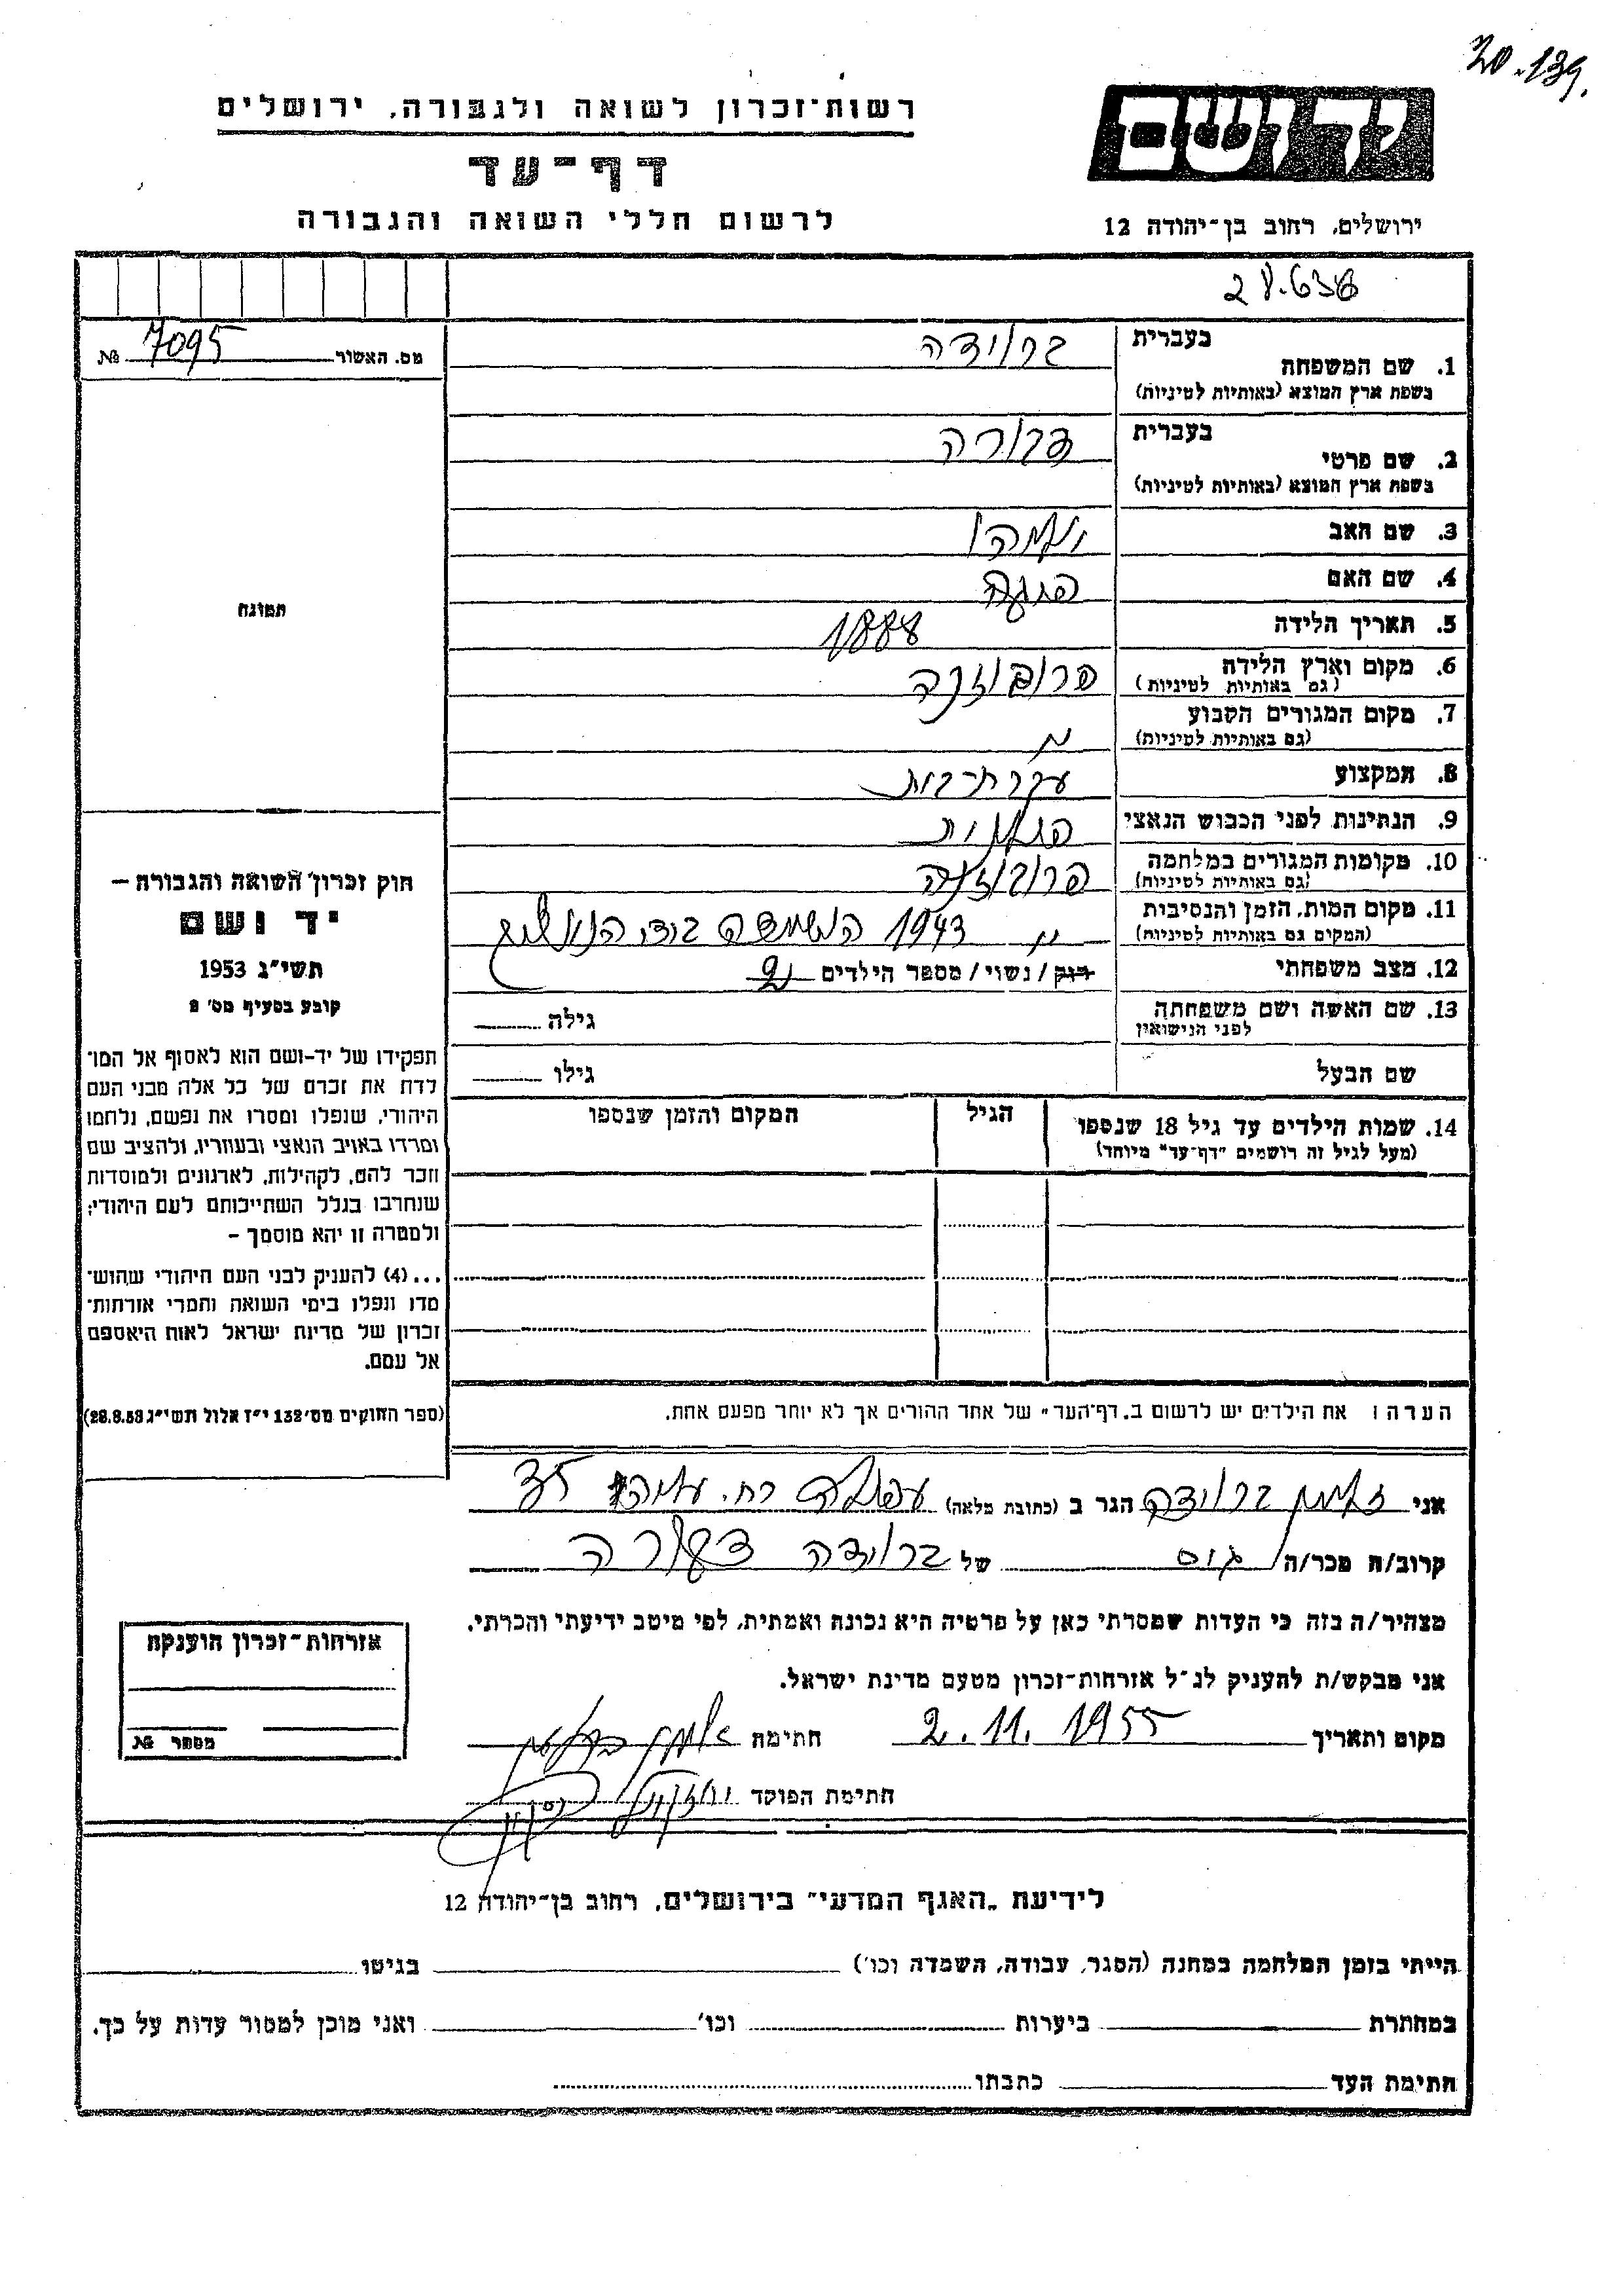 20.139.
רשות־זכרון לשואה ולגבורה, ירושלים
דף־עד
לרשום חללי השואה והגבורה
ידושם
ירושלים, רחוב בן־יהודה 12
מס. האשור 7095 №
תמונה
חוק זכרון השואה והגבורה –
יד ושם
תשי״ג 1953
קובע בסעיף מס׳ 2
תפקידו של יד-ושם הוא לאסוף אל המו־
לדת את זכרם של כל אלה מבני העם
היהודי, שנפלו ומסרו את נפשם, נלחמו
ומרדו באויב הנאצי ובעוזריו, ולהציב שם
וזכר להם, לקהילות, לארגונים ולמוסדות
שנחרבו בגלל השתייכותם לעם היהודי;
ולמטרה זו יהא מוסמך –
...(4) להעניק לבני העם היהודי שהוש־
מדו ונפלו בימי השואה והמרי אזרחות־
זכרון של מדינת ישראל לאות היאספם
אל עמם.
(ספר החוקים מס׳ 132 י״ז אלול תשי״ג 28.8.53)
1. שם המשפחה בעברית ברוידה
בשפת ארץ המוצא (באותיות לטיניות)
2. שם פרטי בעברית דבורה
בשפת ארץ המוצא (באותיות לטיניות)
3. שם האב
4. שם האם
5. תאריך הלידה 1888
6. מקום וארץ הלידה
(גם באותיות לטיניות)
7. מקום המגורים הקבוע
(גם באותיות לטיניות)
8. המקצוע עקרת בית
9. הנתינות לפני הכבוש הנאצי פולנית
10. מקומות המגורים במלחמה
(גם באותיות לטיניות)
11. מקום המות, הזמן והנסיבות 1943 הושמדה בידי הנאצים
(המקום גם באותיות לטיניות)
12. מצב משפחתי רווק / נשוי / מספר הילדים 2
13. שם האשה ושם משפחתה גילה
לפני הנישואין
שם הבעל גילו
14. שמות הילדים עד גיל 18 שנספו הגיל המקום והזמן שנספו
(מעל לגיל זה רושמים "דף־עד" מיוחד)
הערה: את הילדים יש לרשום ב„דף־העד״ של אחד ההורים אך לא יותר מפעם אחת.
אני זלמן ברוידה הגר ב (כתובת מלאה) עפולה רח.
קרוב/ה מכר/ה גיס של ברוידה דבורה
מצהיר/ה בזה כי העדות שמסרתי כאן על פרטיה היא נכונה ואמתית, לפי מיטב ידיעתי והכרתי.
אני מבקש/ת להעניק לנ״ל אזרחות־זכרון מטעם מדינת ישראל.
מקום ותאריך 2.11.1955 חתימה
חתימת הפוקד
אזרחות־זכרון הוענקה
מספר №
לידיעת „האגף המדעי״ בירושלים, רחוב בן־יהודה 12
הייתי בזמן המלחמה במחנה (הסגר, עבודה, השמדה וכו׳) בגיטו
במחתרת ביערות וכו׳ ואני מוכן למסור עדות על כך.
חתימת העד כתבתו